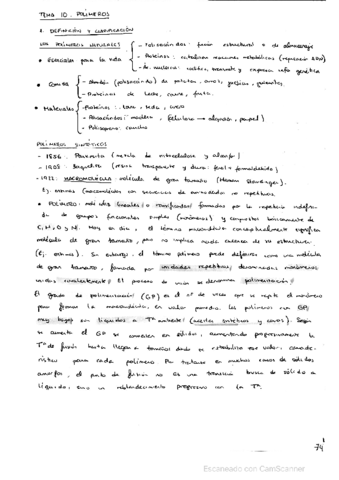 TEMA 10. POLÍMEROS
1. DEFINICIÓN Y CLASIFICACIÓN
LOS POLÍMEROS NATURALES
- Polisacáridos: función estructural o de almacenaje
• Esenciales para la vida - Proteínas: catalizan reacciones metabólicas
- Ác. nucleicos:
• Comida - Almidón (polisacárido) de patatas, arroz, guisantes
- Proteínas de leche, carne, fruta.
• Materiales - Proteínas: lana, seda, cuero
- Polisacáridos: madera, (celulosa → algodón, papel)
- Poliisopreno: caucho
POLÍMEROS SINTÉTICOS
- 1856: Parkesita (mezcla de nitrocelulosa y alcanfor)
- 1909: Baquelita (resina transparente y dura: fenol + formaldehido)
- 1922: MACROMOLÉCULA: molécula de gran tamaño (Hermann Staudinger).
Ej: enzimas (macromolécula con secuencias de aminoácidos no repetitivas.
• POLÍMERO: moléculas lineales (o ramificadas) formadas por la repetición indefini-
da de grupos funcionales simples (monómeros) y compuestas básicamente de
C, H, O y N. Hoy en día, el término macromolécula conceptualmente significa
molécula de gran tamaño, pero no implica nada acerca de su estructura.
(Ej: enzimas). Sin embargo, el término polímero puede definirse como una molécula
de gran tamaño, formada por unidades repetitivas, denominadas monómeros
unidos covalentemente. El proceso de unión se denomina polimerización.
El grado de polimerización (GP) es el nº de veces que se repite el monómero
para formar la macromolécula, en valor promedio. Los polímeros con GP
muy bajos son líquidos a Tª ambiente (aceites sintéticos y ceras). Según
se aumenta el GP se convierten en sólido, aumentando progresivamente la
Tª de fusión hasta llegar a tamaños donde se estabiliza ese valor, caracte-
rístico para cada polímero. Al tratarse en muchos casos de sólidos
amorfos, el punto de fusión no es una transición brusca de sólido a
líquido, sino un reblandecimiento progresivo con la Tª.
74
Escaneado con CamScanner